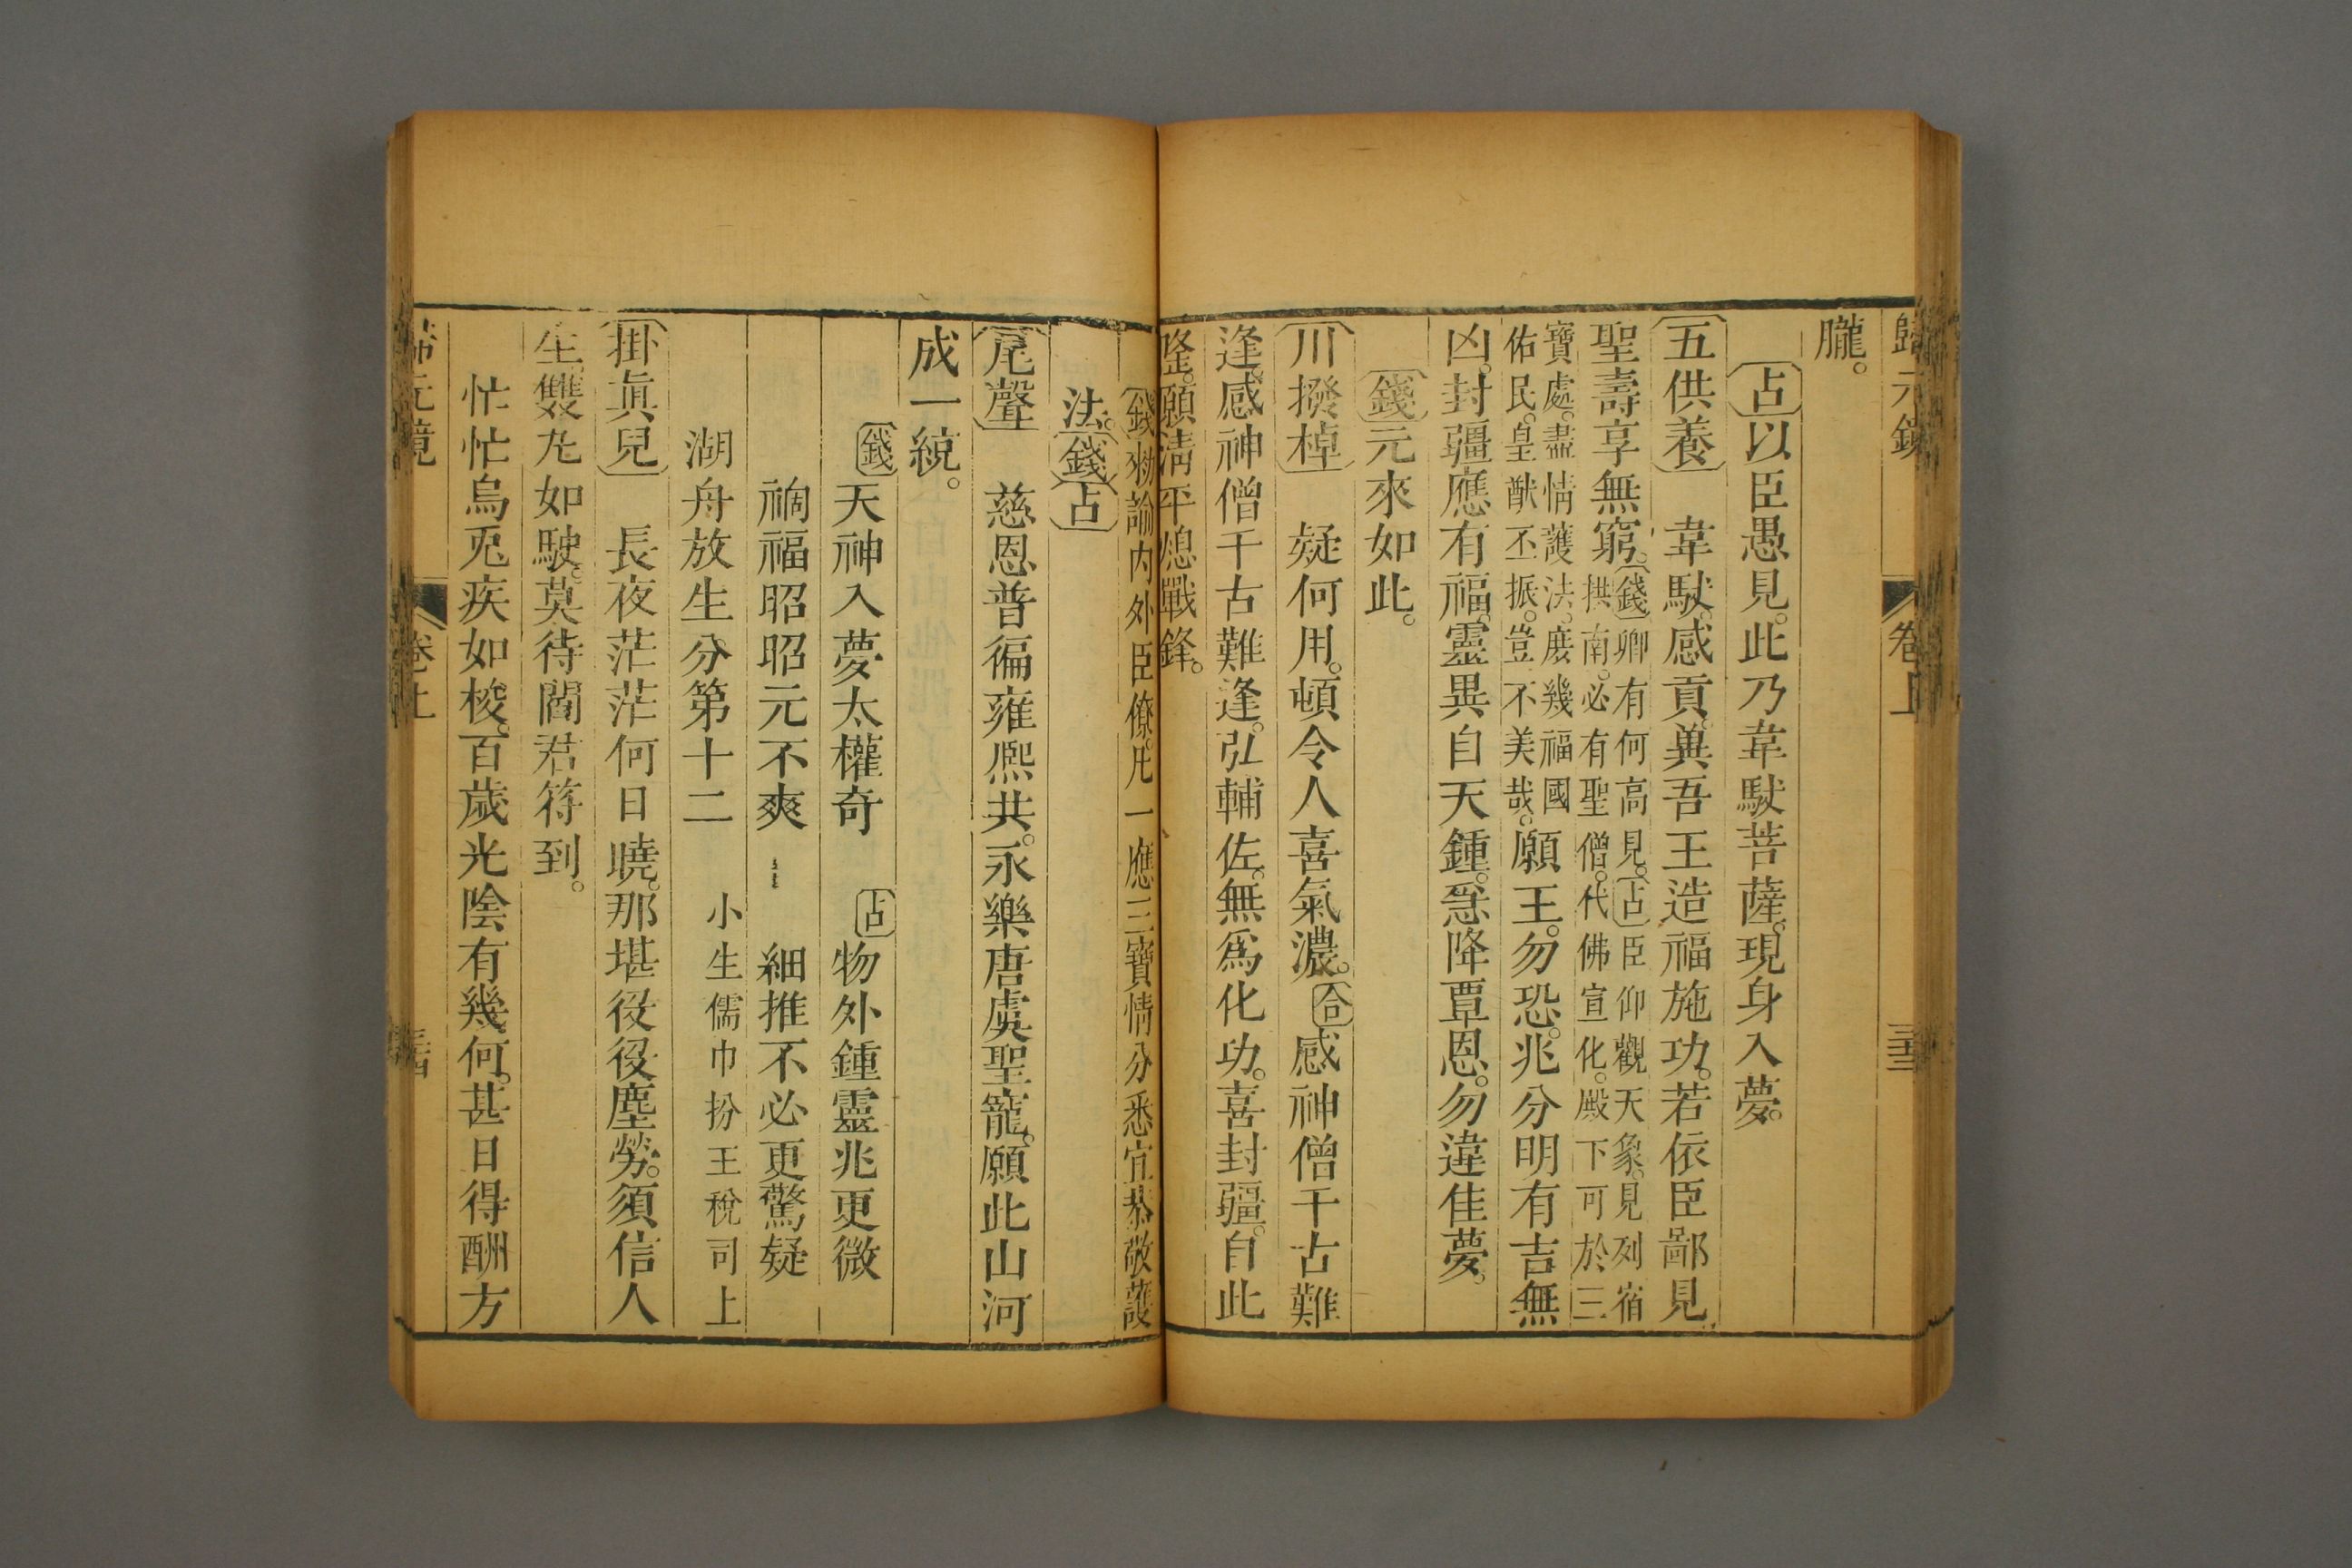 歸元鏡 卷上 三十三
朧。
占以臣愚見。此乃韋馱菩薩。現身入夢。
五供養 韋馱感貢。冀吾王造福施功。若依臣鄙見
聖壽享無窮。錢卿有何高見。占臣仰觀天象。見列宿
拱南。必有聖僧。代佛宣化。殿下可於三
寶處。盡情護法。庶幾福國
佑民。皇猷丕振。豈不美哉。願王。勿恐。兆分明有吉無
凶。封疆應有福。靈異自天鍾。爲降覃恩。勿違佳夢。
錢元來如此。
川撥棹 疑何用。頓令人喜氣濃。合感神僧千古難
逢。感神僧千古難逢。弘輔佐。無爲化功。喜封疆。自此
隆。願清平熄戰鋒。
錢勅諭內外臣僚。凡一應三寶情分悉宜恭敬護
法。錢占
尾聲 慈恩普徧雍熈共。永樂唐虞聖寵。願此山河
成一統。
錢天神入夢太權奇 占物外鍾靈兆更微
禍福昭昭元不爽 細推不必更驚疑
湖舟放生分第十二 小生儒巾扮王稅司上
掛眞兒 長夜茫茫何日曉。那堪役役塵勞。須信人
生。雙丸如駛。莫待閻君符到。
忙忙烏兎疾如梭。百歲光陰有幾何。甚日得酬方
歸元鏡 卷上 三十四